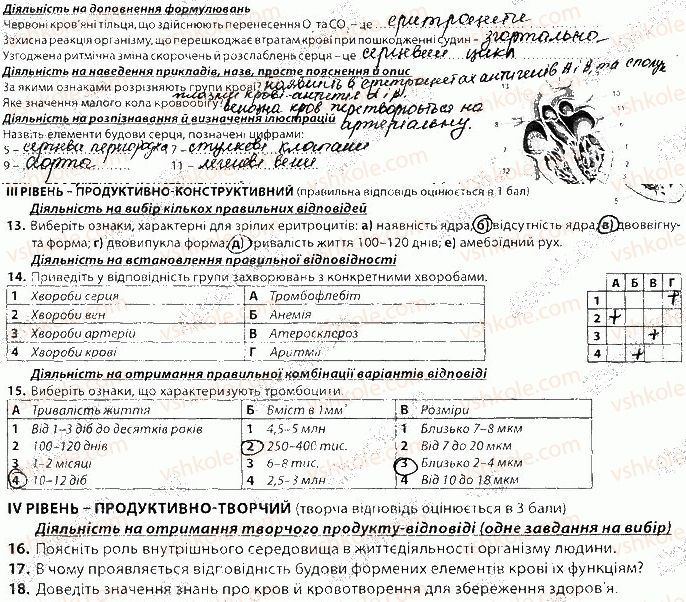 Діяльність на доповнення формулювань
Червоні кров'яні тільця, що здійснюють перенесення О та СО₂ – це еритроцити
Захисна реакція організму, що перешкоджає втратам крові при пошкодженні судин – згортально
Узгоджена ритмічна зміна скорочень й розслаблень серця – це серцевий цикл
Діяльність на наведення прикладів, назв, просте пояснення й опис
За якими ознаками розрізняють групи крові? наявність в еритроцетах антигенів А і В, та
плазмі крові-антитіл
Яке значення малого кола кровообігу? венозна кров перетворюється на
артеріальну.
Діяльність на розпізнавання й визначення ілюстрацій
Назвіть елементи будови серця, позначені цифрами:
5 – серцева 7 – стулкові клапани
9 – аорта 11 – легеневі вени
ІІІ РІВЕНЬ – ПРОДУКТИВНО-КОНСТРУКТИВНИЙ (правильна відповідь оцінюється в 1 бал)
Діяльність на вибір кількох правильних відповідей
13. Виберіть ознаки, характерні для зрілих еритроцитів: а) наявність ядра; б) відсутність ядра; в) двоввігну-
та форма; г) двовипукла форма; д) тривалість життя 100–120 днів; е) амебоїдний рух.
Діяльність на встановлення правильної відповідності
14. Приведіть у відповідність групи захворювань з конкретними хворобами.
А Б В Г
1 Хвороби серця А Тромбофлебіт 1 +
2 Хвороби вен Б Анемія 2 +
3 Хвороби артерій В Атеросклероз 3 +
4 Хвороби крові Г Аритмії 4 +
Діяльність на отримання правильної комбінації варіантів відповіді
15. Виберіть ознаки, що характеризують тромбоцити.
А Тривалість життя Б Вміст в 1мм³ В Розміри
1 Від 1–3 діб до десятків років 1 4,5–5 млн 1 Близько 7–8 мкм
2 100–120 днів 2 250–400 тис. 2 Від 7 до 20 мкм
3 1–2 місяці 3 6–8 тис. 3 Близько 2–4 мкм
4 10–12 діб 4 2,5–3 млн 4 Від 10 до 18 мкм
IV РІВЕНЬ – ПРОДУКТИВНО-ТВОРЧИЙ (творча відповідь оцінюється в 3 бали)
Діяльність на отримання творчого продукту-відповіді (одне завдання на вибір)
16. Поясніть роль внутрішнього середовища в життєдіяльності організму людини.
17. В чому проявляється відповідність будови формених елементів крові їх функціям?
18. Доведіть значення знань про кров й кровотворення для збереження здоров'я.